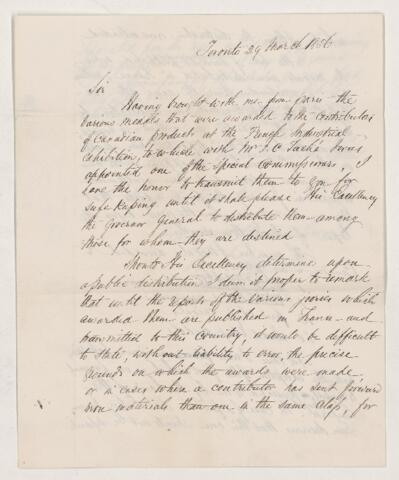 Toronto 29 March 1856
Sir
Having brought with me from Paris the
various medals that were awarded to the contributors
of Canadian products at the French Industrial
Exhibition, to which with Mr J. C. Taché I was
appointed one of the Special Commissioners, I
have the honor to transmit them to you for
safe keeping until it shall please His Excellency
the Governor General to distribute them among
those for whom they are destined
Should His Excellency determine upon
a public distribution I deem it proper to remark
that until the reports of the various juries which
awarded them are published in France and
transmitted to this country, it would be difficult
to state, without liability to error, the precise
grounds on which the awards were made
or in cases where a contributor has sent forward
more materials than one in the same class, for